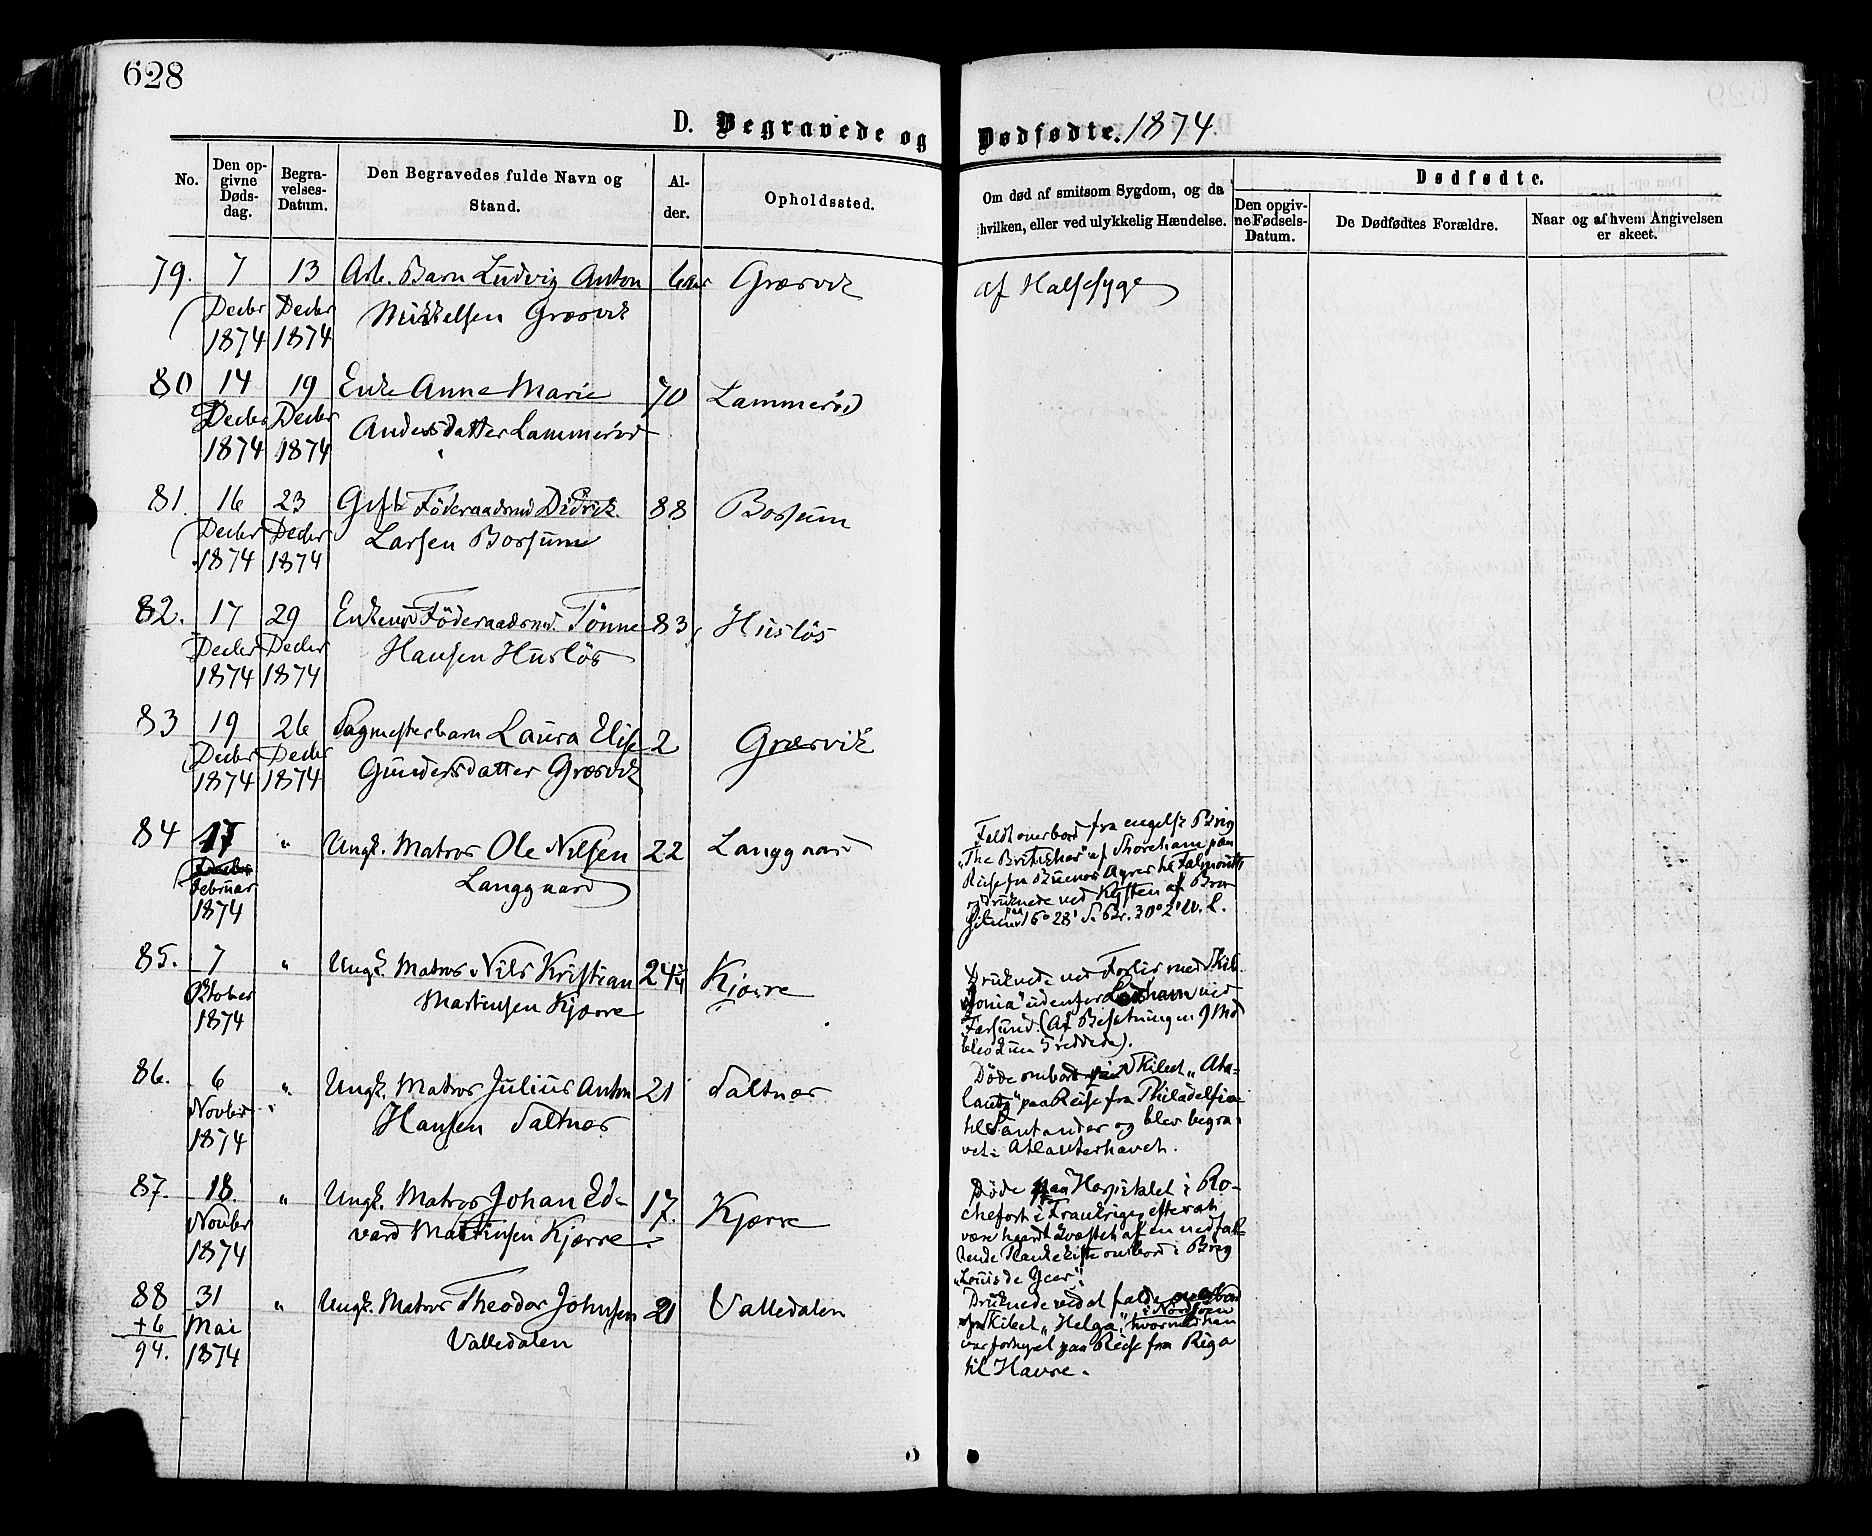 628
D. Begravede og Dødfødte. 1874.
No.
Den opgivne Dødsdag.
Begravelses-Datum.
Den Begravedes fulde Navn og Stand.
Alder.
Opholdssted.
Om død af smitsom Sygdom, og da hvilken, eller ved ulykkelig Hændelse.
Dødfødte.
Den opgivne Fødsels-Datum.
De Dødfødtes Forældre.
Naar og af hvem Angivelsen er skeet.
79. 7 13 Arb. Barn Ludvig Anton 6 aar Græsvik af Halssyge
Decbr Decbr Mikkelsen Græsvik
1874 1874
80 14 19 Enke Anne Marie 70 Lammerød
Decbr Decbr Andersdatter Lammerød
1874 1874
81. 16 23 Gift Föderaadsmd Didrik 88 Bossum
Decbr Decbr Larsen Bossum
1874 1874
82. 17 29 Enkemd Föderaadsmd. Tönne 83 Huslös
Decbr Decbr Hansen Huslös
1874 1874
83 19 26 Sagmesterbarn Laura Elise 2 Græsvik
Decbr Decbr Gundersdatter Græsvik
1874 1874
84 17 " Ungk. Matros Ole Nilsen 22 Langgaard
Februar Langgaard
1874
Faldt overbord fra engelsk Brig
"The Britisher" af Shoreham paa
Reise fra Buenos Ayres til Falmouth
og druknede ved Kysten af Bra-
silien paa 16° 28' S. Br. 30° 2' W. L.
85. 7 " Ungk. Matros Nils Kristian 24 Kjærre
Oktober Martinsen Kjærre
1874
Druknede ved Forlis med Skib
udenfor ved
Farsund. (Af Besætningen 9 Md
blev kun 5 reddede).
86. 6 " Ungk. Matros Julius Anton 21 Saltnes
Novbr Hansen Saltnes
1874
Døde ombord Skibet "Ata-
lanta" paa Reise fra Philadelfia
til Santander og blev begra-
vet i Atlanterhavet.
87. 18. " Ungk. Matros Johan Ed- 17. Kjærre
Novbr vard Martinsen Kjærre
1874
Døde paa Hospitalet i Ro-
chefort i Frankrige, efter at
være haardt kvæstet af en nedfal-
dende Plankekiste ombord i Brig
"Louis de Geer".
88 31 " Ungk. Matros Theodor Johnsen 21 Valledalen
+6 Mai Valledalen
94. 1874
Druknede ved at falde overbord
i Nordsöen
fra Skibet "Helga", hvormed han
var forhyret paa Reise fra Riga
til Havre.